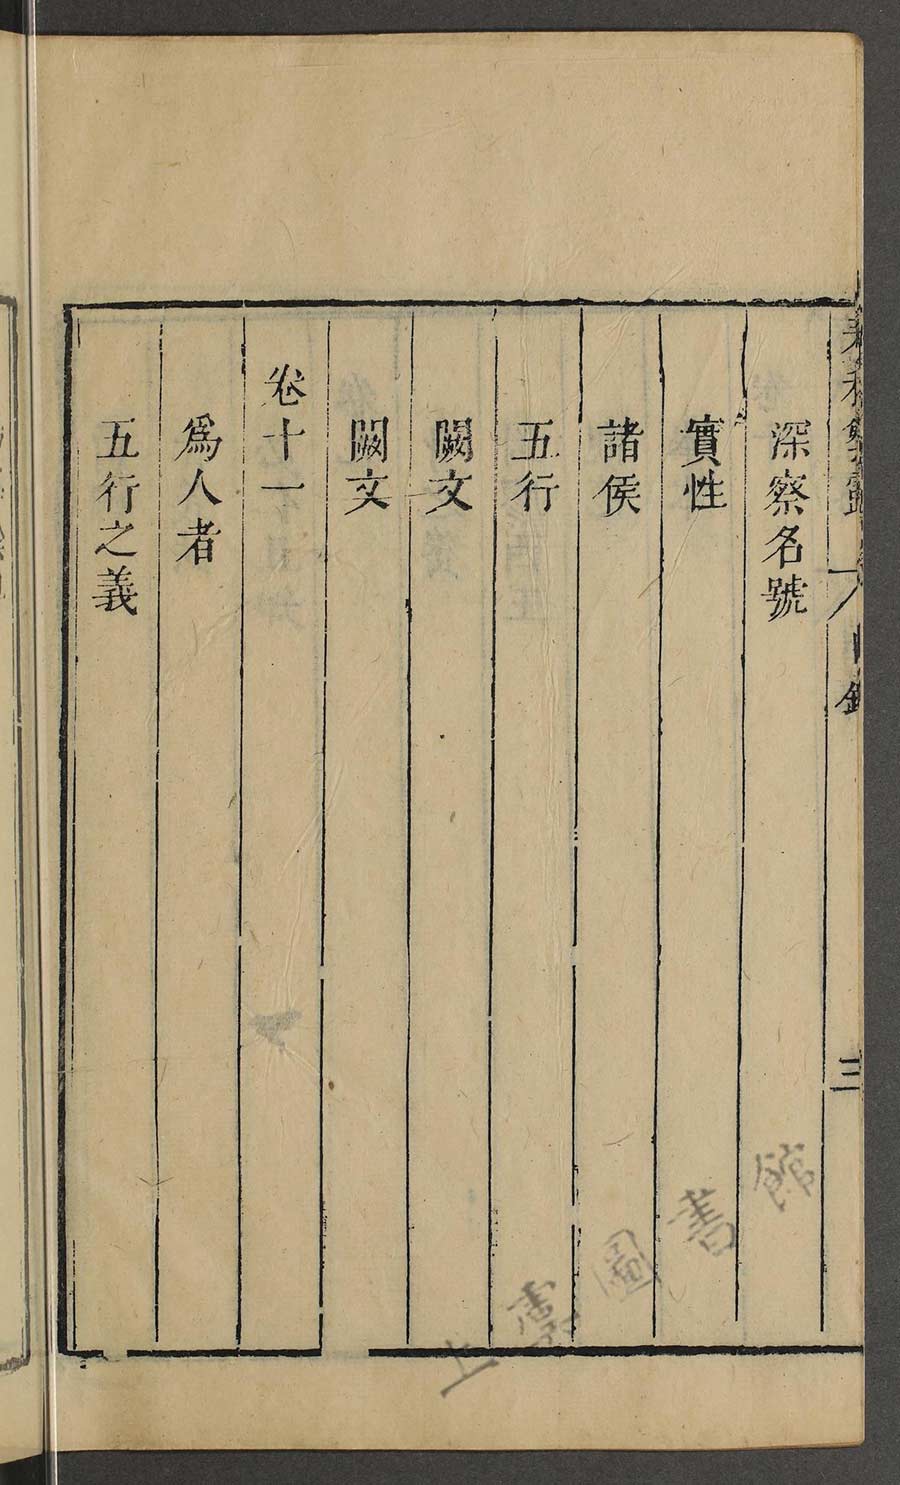 春秋繁露 目錄 三
深察名號
實性
諸侯
五行
闕文
闕文
卷十一
爲人者
五行之義
上海圖書館